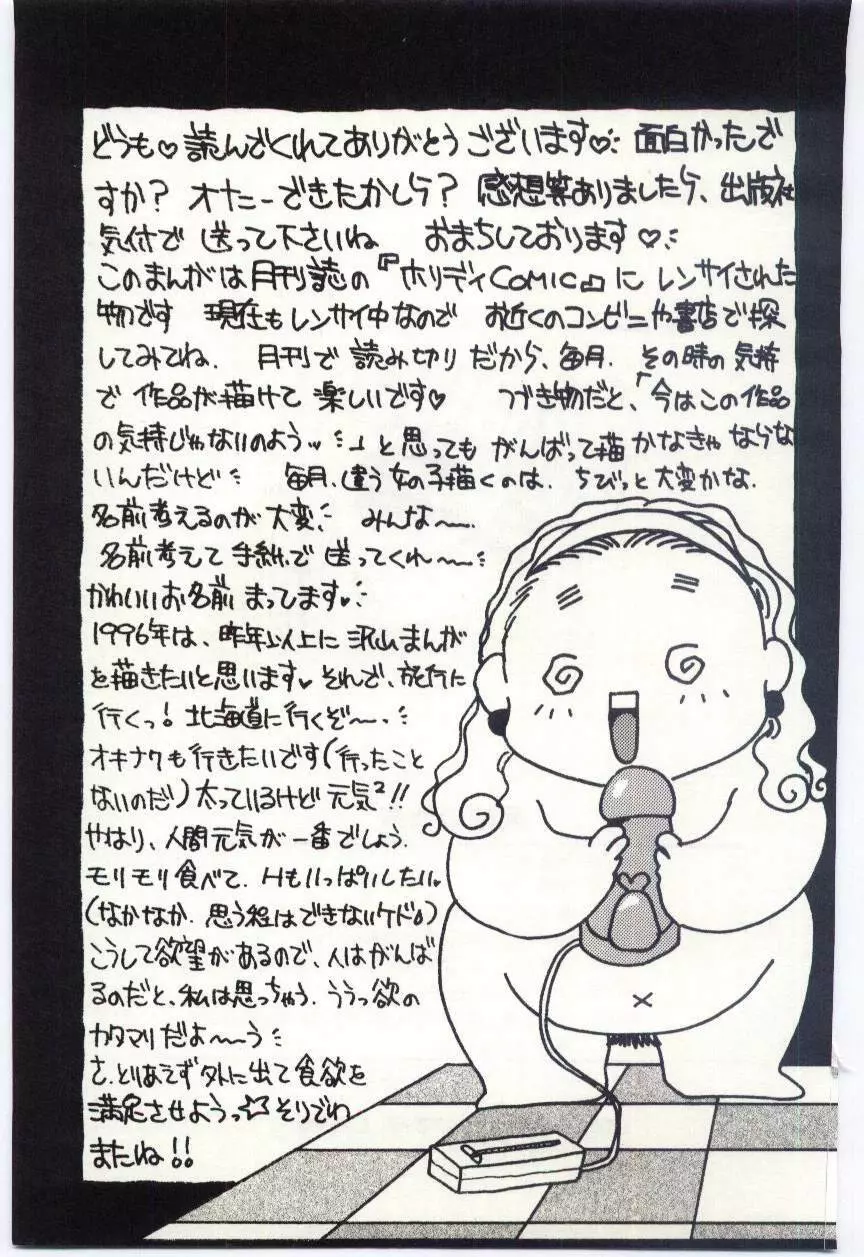 どうも♡読んでくれてありがとうございます♡ 面白かったで
すか？ オナニーできたかしら？ 感想等ありましたら、出版社
気付で 送って下さいね おまちしております♡
このまんがは月刊誌の『ホリディCOMIC』に レンサイされた
物です 現在もレンサイ中なので お近くのコンビニや書店で探
してみてね． 月刊で 読み切りだから、毎月． その時の気持
で 作品が描けて 楽しいです♡ つづき物だと、「今はこの作品
の気持じゃないのよう」と思っても がんばって描かなきゃ ならな
いんだけど 毎月．違う女の子描くのは． ちびっと大変かな．
名前考えるのが大変． みんな〜〜．
名前考えて 手紙で 送ってくれ〜〜
かわいいお名前 まってます♡
1996年は、昨年以上に沢山まんが
を描きたいと思います♡ それで、旅行に
行くっ！ 北海道に行くぞ〜〜．
オキナワも行きたいです（行ったこと
ないのだ）太っているけど 元気²！！
やはり、人間元気が一番でしょう．
モリモリ食べて．Hもいっぱいしたい♡
（なかなか．思う程はできないケド）
こうして欲望があるので、人はがんば
るのだと、私は思っちゃう．ううっ欲の
カタマリだよ〜〜う
さ、とりあえず外に出て食欲を
満足させようっ☆そりでわ
またね！！